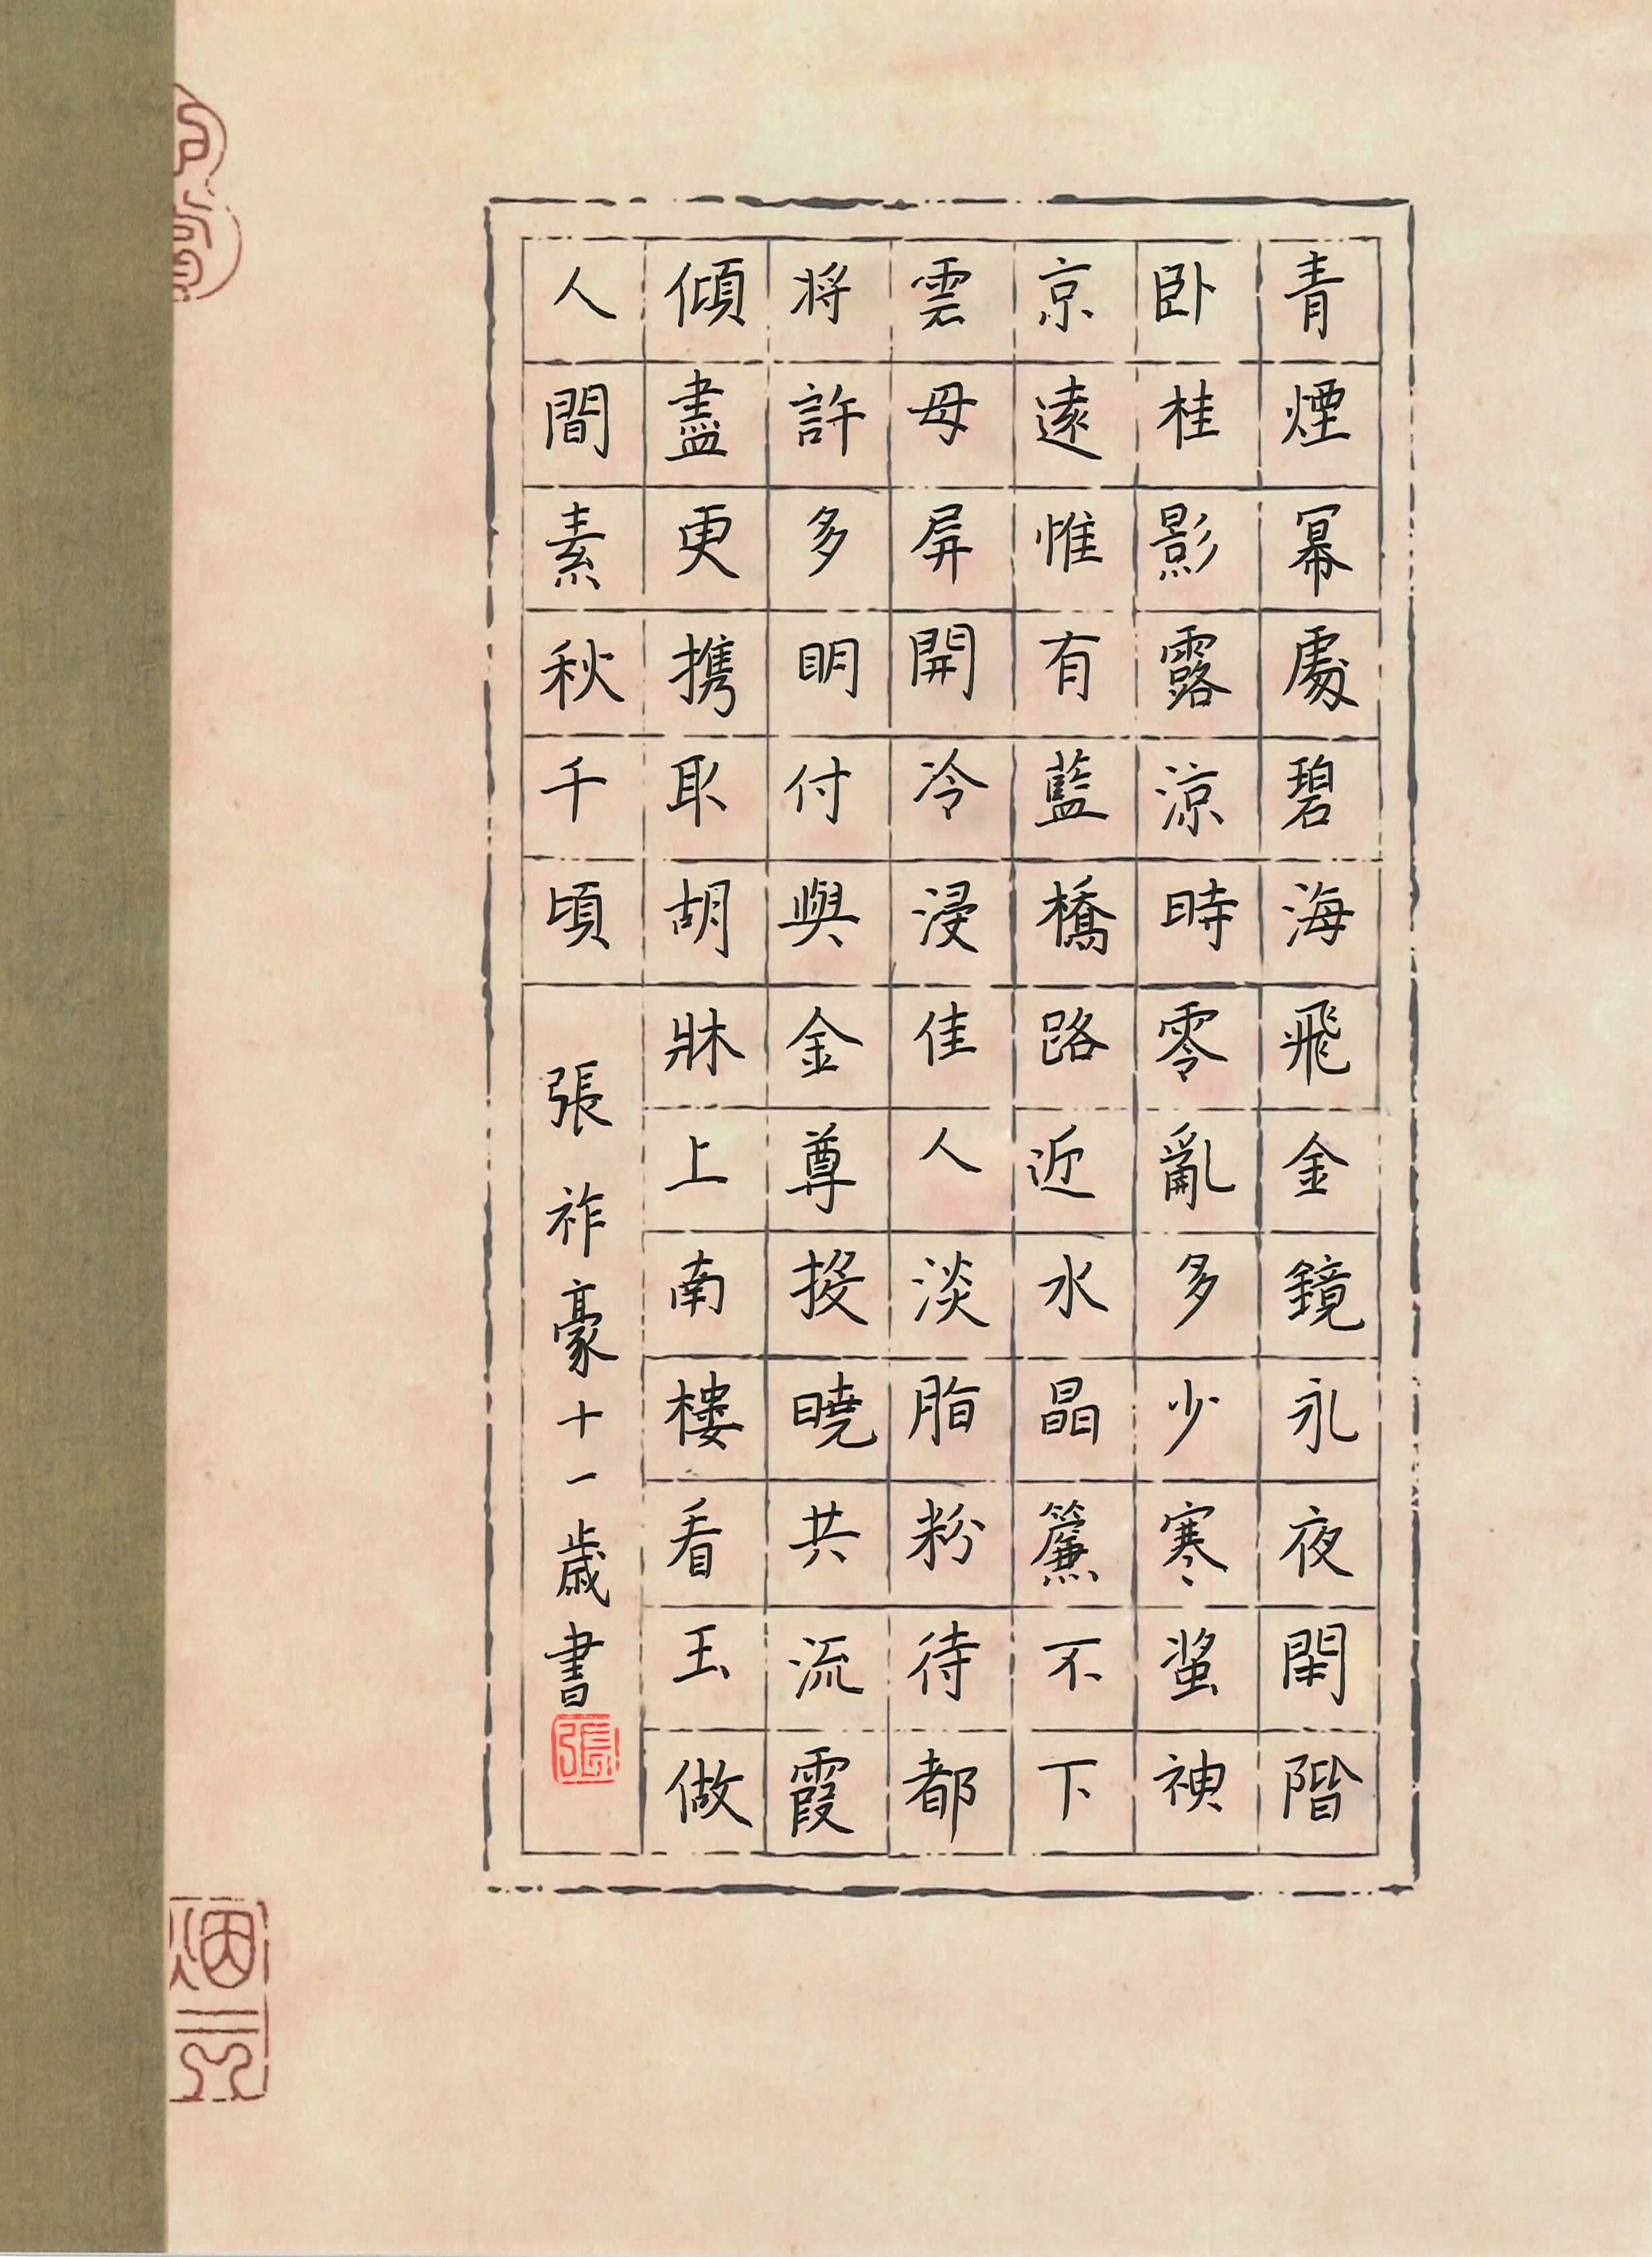 青煙冪處碧海飛金鏡永夜閑階
卧桂影露涼時零亂多少寒螀神
京遠惟有藍橋路近水晶簾不下
雲母屏開冷浸佳人淡脂粉待都
將許多明付與金尊投曉共流霞
傾盡更携取胡牀上南樓看玉做
人間素秋千頃
張祚豪十一歲書
張